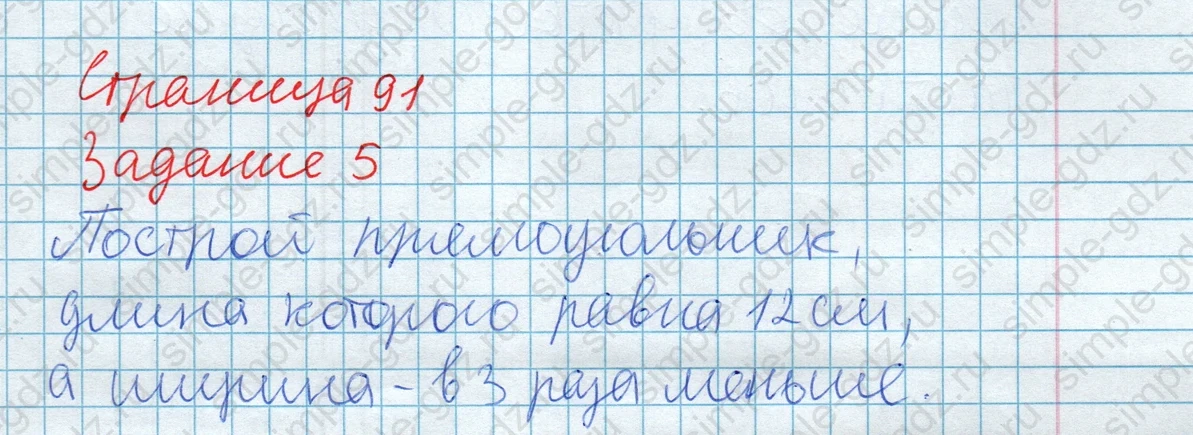 Страница 91
Задание 5
Построй прямоугольник,
длина которого равна 12 см,
а ширина - в 3 раза меньше.
simple-gdz.ru